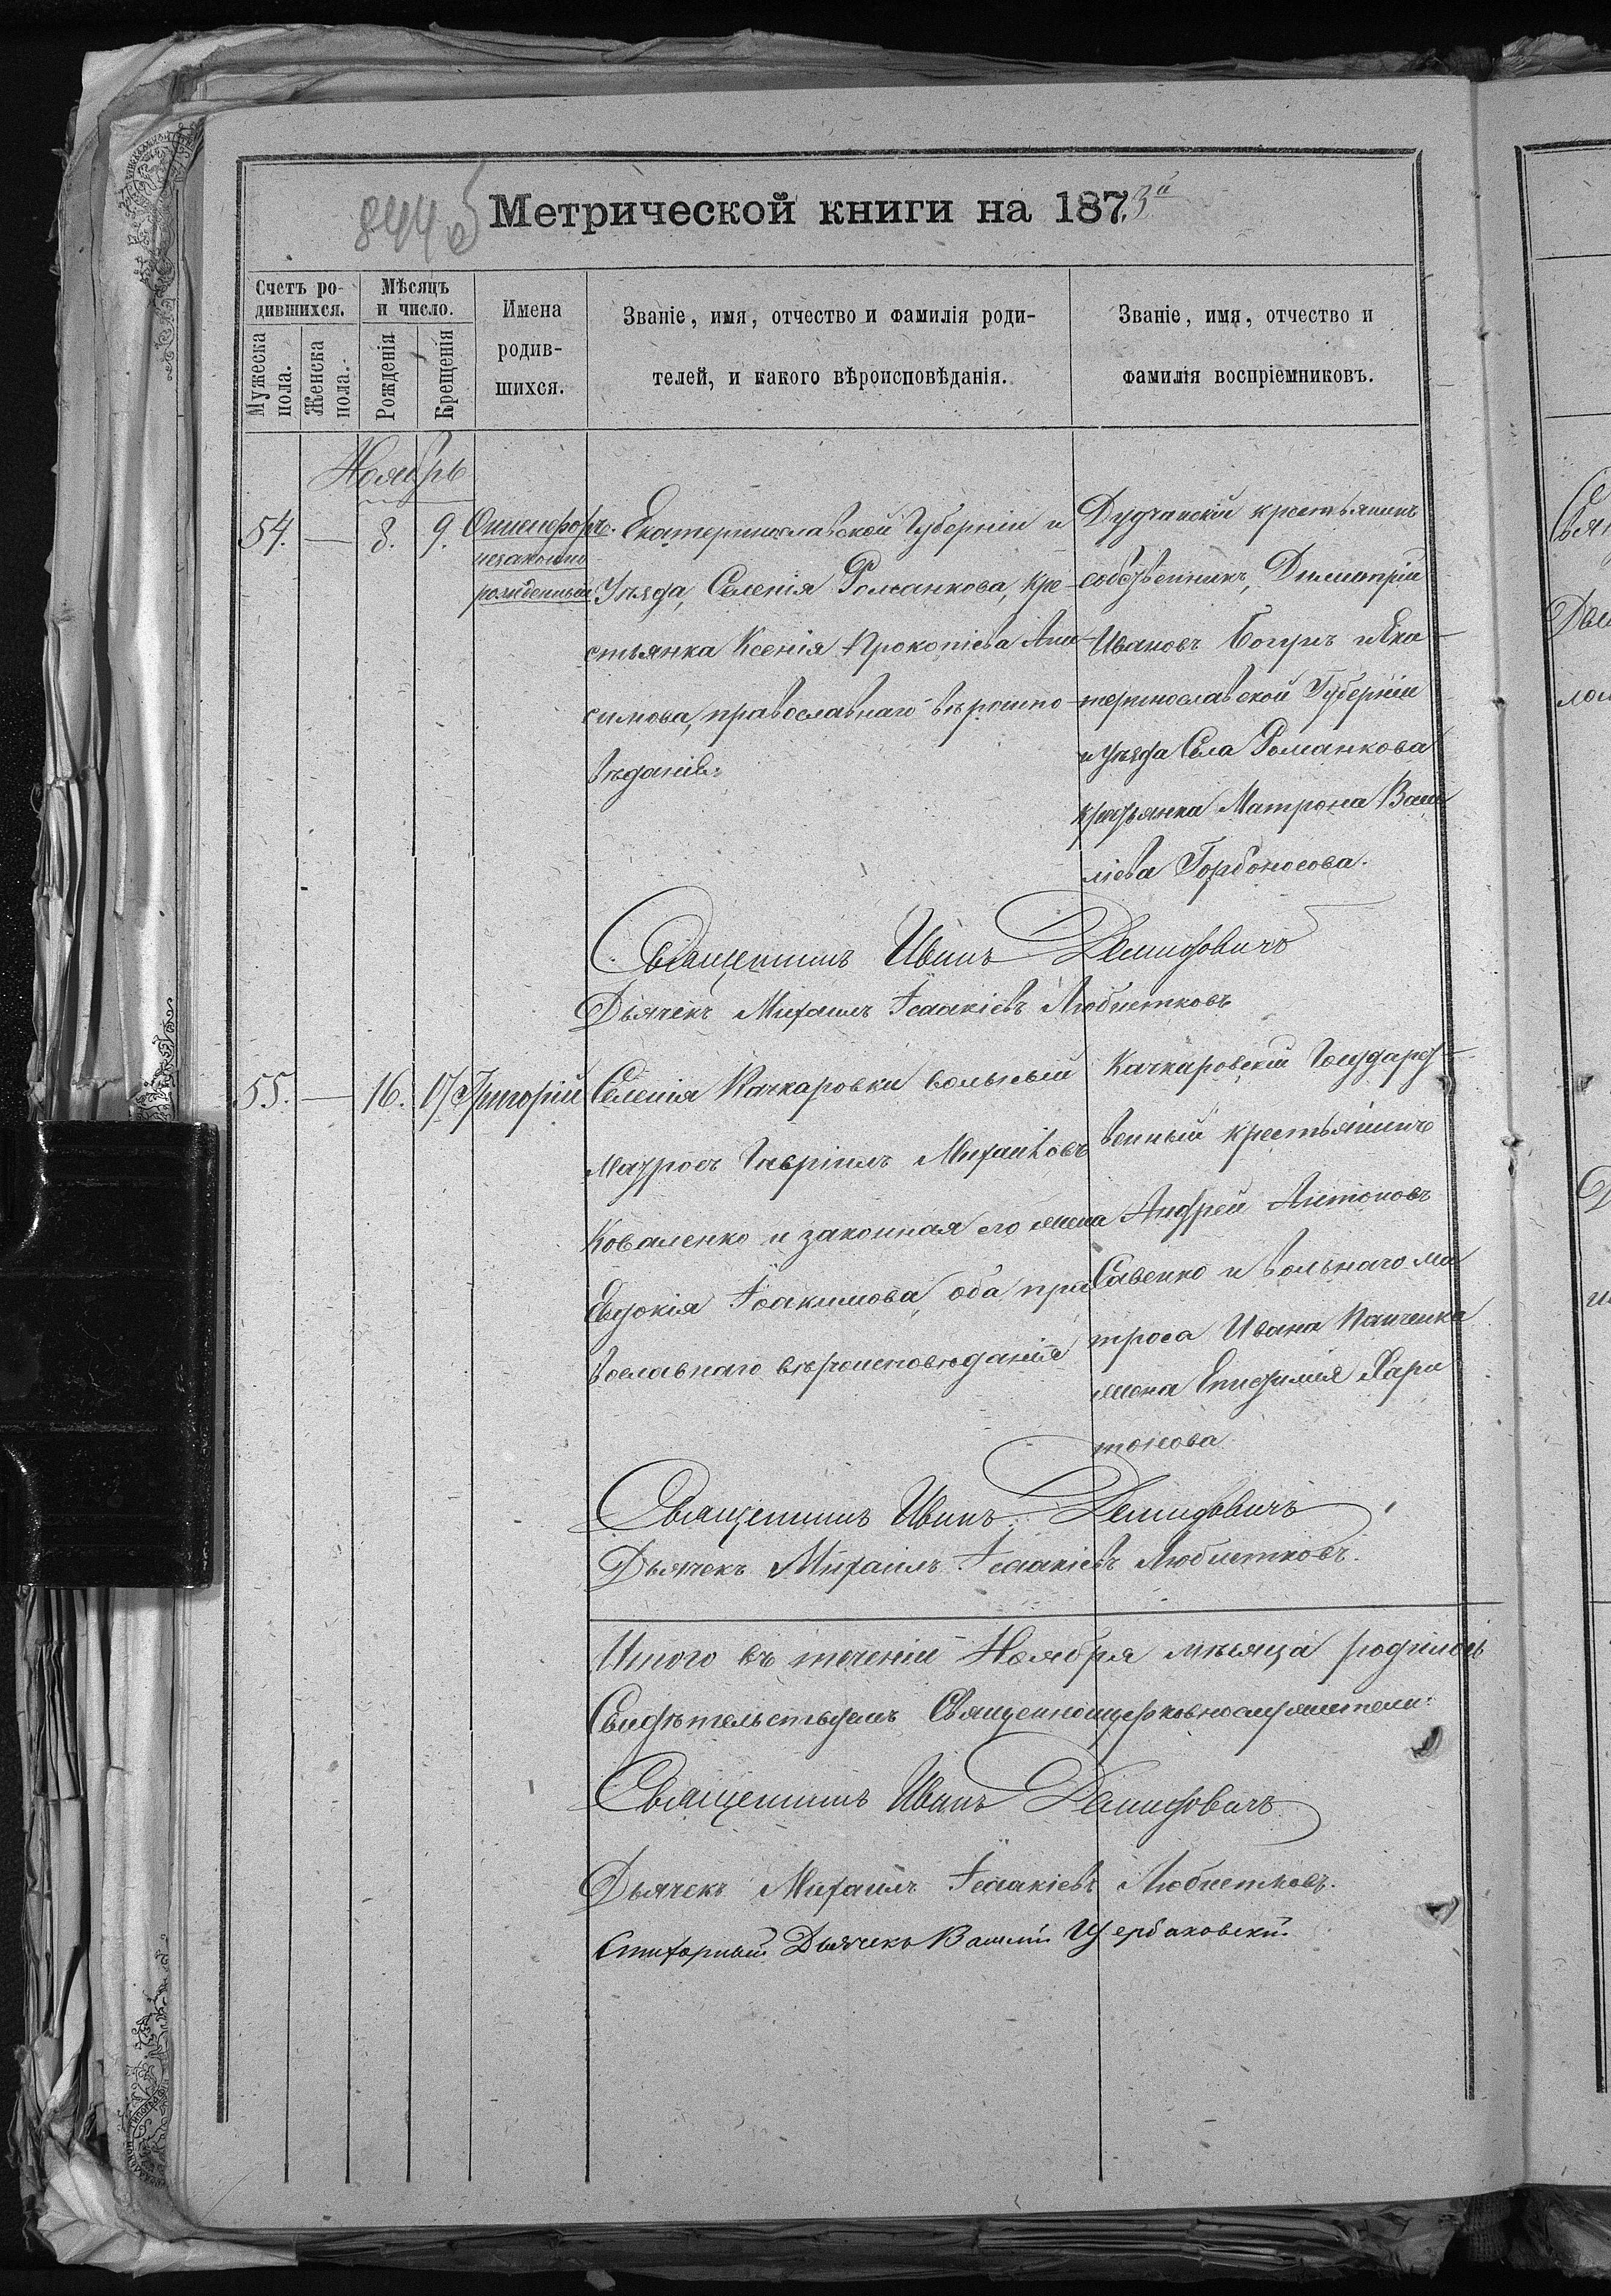 844об
Метрической книги на 1873й
Счетъ ро-
дившихся.
Мужеска
пола.
Женска
пола.
Мѣсяцъ
и число.
Рожденія
Крещенія
Имена
родив-
шихся.
Званіе, имя, отчество и фамилія роди-
телей, и какого вѣроисповѣданія.
Званіе, имя, отчество и
фамилія воспріемниковъ.
Ноябрь
54. — 8. 9. Онисифоръ.
незаконно
рожденный
Екатеринославской Губерніи и
Уѣзда, Селенія Романкова, кре-
стьянка Ксенія Прокопіева Ани-
симова, православнаго вѣроиспо-
вѣданія.
Дудчанскій крестьянинъ
собственникъ, Димитрій
Ивановъ Богунъ и Ека-
теринославской Губерніи
и уѣзда Села Романкова
крестьянка Матрона Васи
ліева Горбоносова.
Священникъ Иванъ Демидовичъ
Дьячекъ Михаилъ Ісаакіевъ Любистковъ
55. — 16. 17. Григорій
Селенія Качкаровки вольный
матросъ Гавріилъ Михайловъ
Коваленко и законная его жена
Евдокія Іоакимова, оба пра
вославнаго вѣроисповѣданія
Качкаровскій Государст-
венный крестьянинъ
Андрей Антоновъ
Савенко и вольнаго ма
троса Ивана Панченка
жена Евфимія Хари
тонова
Священникъ Иванъ Демидовичъ
Дьячекъ Михаилъ Ісаакіевъ Любистковъ.
Итого въ теченіи Ноября мѣсяца родилось
Свидѣтельствуемъ Священноцерковнослужители:
Священникъ Иванъ Демидовичъ
Дьячекъ Михаилъ Ісаакіевъ Любистковъ.
Стихарный Дьячекъ Василій Щербаковскій